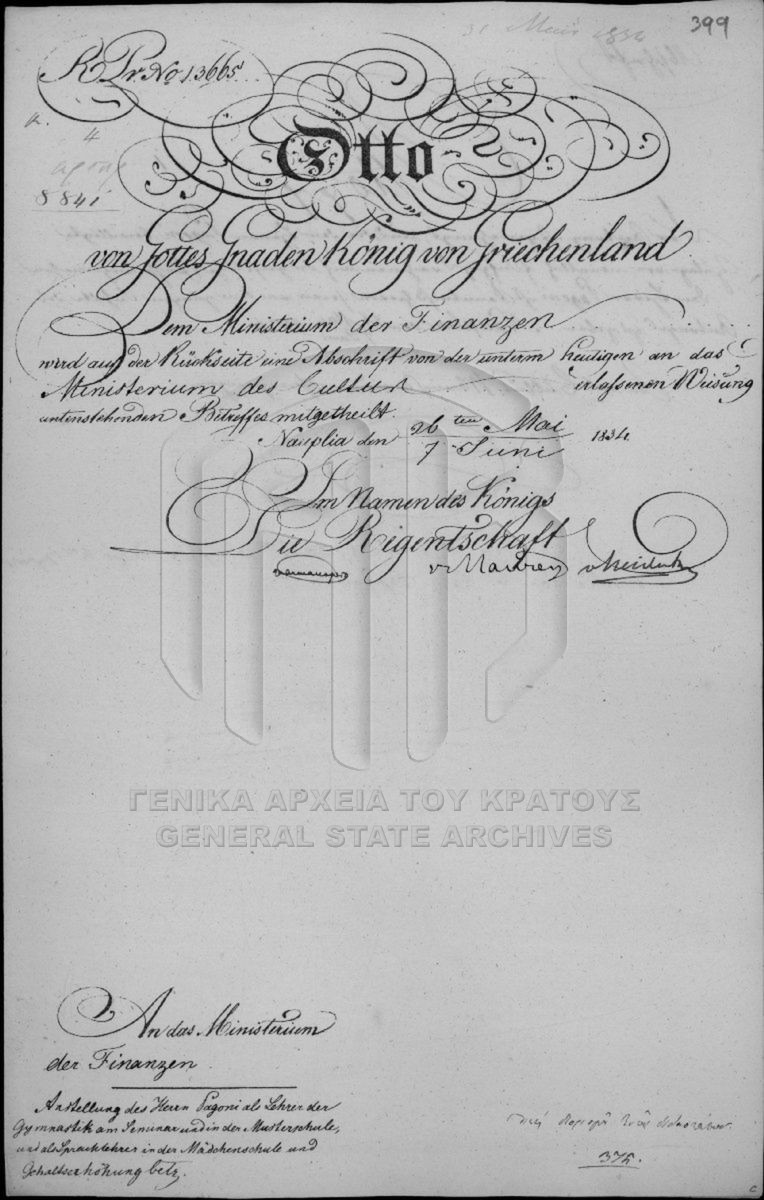 399
R Pr No 13665.
4
8841
Otto
von Gottes Gnaden König von Griechenland
Dem Ministerium der Finanzen
wird auf der Rückseite eine Abschrift von der unterm heutigen an das
Ministerium des Cultus erlassenen Weisung
untenstehenden Betreffes mitgetheilt.
Nauplia den 26ten Mai / 7 Juni 1834
Im Namen des Königs
Die Regentschaft
v Maurer v Heideck
ΓΕΝΙΚΑ ΑΡΧΕΙΑ ΤΟΥ ΚΡΑΤΟΥΣ
GENERAL STATE ARCHIVES
An das Ministerium
der Finanzen.
Anstellung des Herrn Pagoni als Lehrer der
Gymnastik am Seminar und in der Musterschule,
und als Sprachlehrer in der Mädchenschule und
Gehaltserhöhung betr.
375.